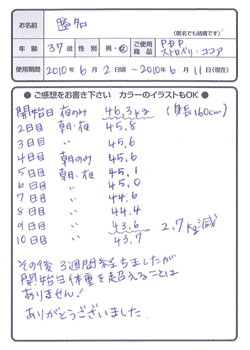 お名前 匿名
(匿名でも結構です)
年齢 37歳 性別 男・女 ご使用商品 PBP ストロベリ・ココア
使用期間 2010年6月2日頃~2010年6月11日(現在)
● ご感想をお書き下さい カラーのイラストもOK ●
開始日 夜のみ 46.3kg (身長160cm)
2日目 朝・夜 45.8
3日目 〃 45.6
4日目 朝のみ 45.6
5日目 朝・夜 45.1
6日目 〃 45.0
7日目 〃 44.6
8日目 〃 44.4
9日目 〃 43.6 2.7kg減
10日目 〃 43.7
その後3週間経ちましたが
開始時体重を超えることは
ありません!
ありがとうございました